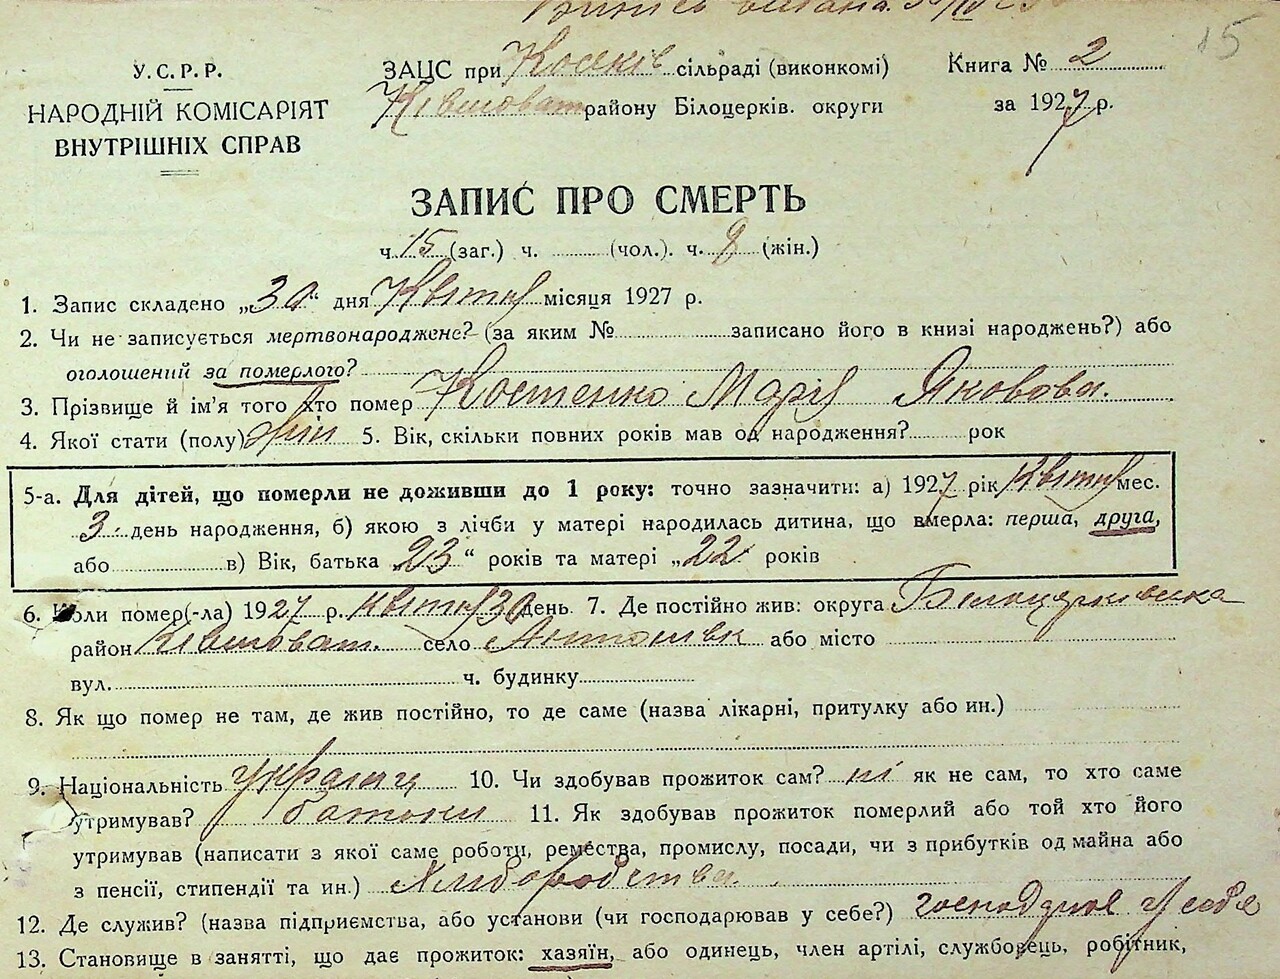 15
У.С.Р.Р.
НАРОДНІЙ КОМІСАРІЯТ
ВНУТРІШНІХ СПРАВ
ЗАЦС при сільраді (виконкомі)
Ківшоват району Білоцерків. округи
Книга № 2
за 1927 р.
ЗАПИС ПРО СМЕРТЬ
ч. 15 (заг.) ч. (чол.). ч. 8 (жін.)
1. Запис складено „30“ дня Квітня місяця 1927 р.
2. Чи не записується мертвонароджене? (за яким № записано його в книзі народжень?) або
оголошений за померлого?
3. Прізвище й ім'я того хто помер Костенко Марія Яковова.
4. Якої стати (полу) жін 5. Вік, скільки повних років мав од народження? рок
5-а. Для дітей, що померли не доживши до 1 року: точно зазначити: а) 1927 рік Квітня мес.
3 день народження, б) якою з лічби у матері народилась дитина, що вмерла: перша, друга,
або в) Вік, батька „23“ років та матері „22“ років
6. Коли помер(-ла) 1927 р. квітня 30 день. 7. Де постійно жив: округа Білоцерківська
район Ківшоват. село Антонівк або місто
вул. ч. будинку
8. Як що помер не там, де жив постійно, то де саме (назва лікарні, притулку або ин.)
9. Національність українц 10. Чи здобував прожиток сам? ні як не сам, то хто саме
утримував? батьки 11. Як здобував прожиток померлий або той хто його
утримував (написати з якої саме роботи, ремества, промислу, посади, чи з прибутків од майна або
з пенсії, стипендії та ин.) Хліборобства
12. Де служив? (назва підприємства, або установи (чи господарював у себе?) у себе
13. Становище в занятті, що дає прожиток: хазяїн, або одинець, член артілі, службовець, робітник,